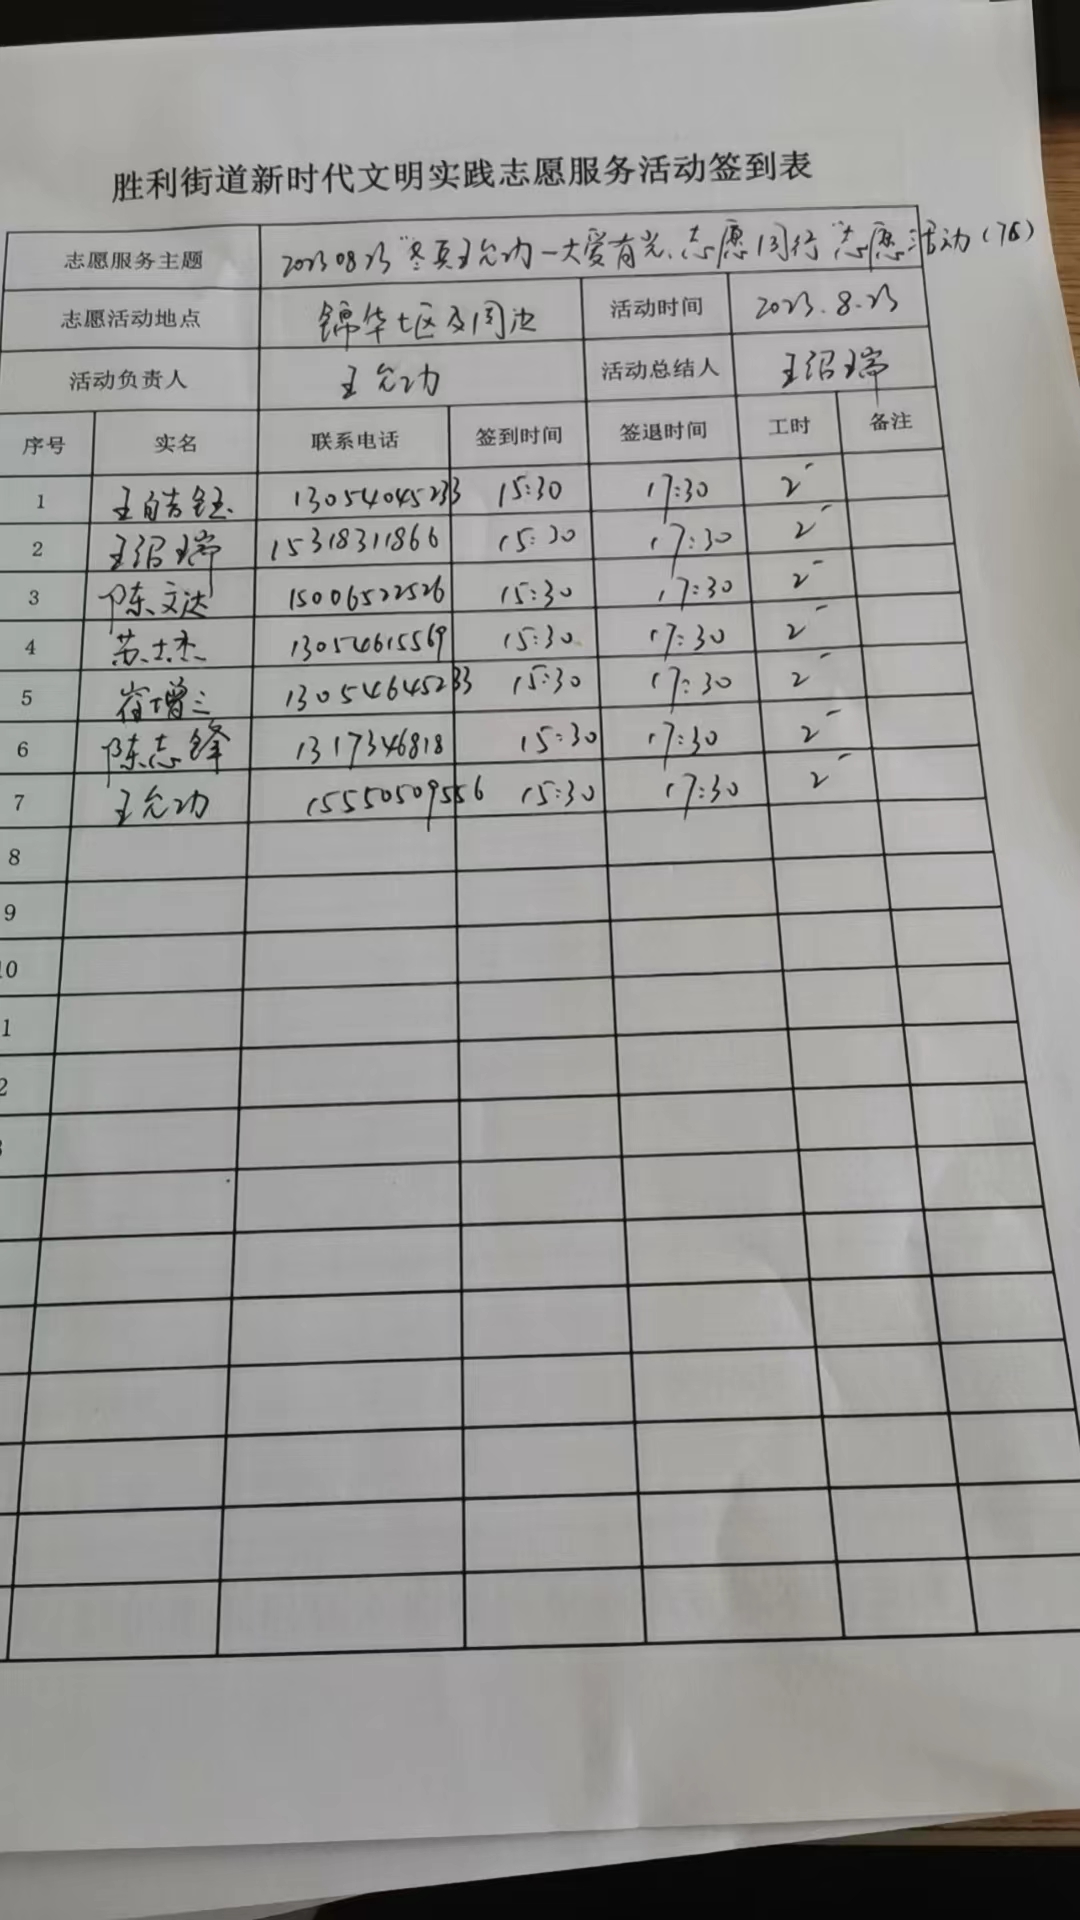 胜利街道新时代文明实践志愿服务活动签到表
志愿服务主题 20230823"老兵王允功一大爱有光、志愿同行"志愿活动(76)
志愿活动地点 锦华七区及周边 活动时间 2023.8.23
活动负责人 王允功 活动总结人 王绍瑞
序号 实名 联系电话 签到时间 签退时间 工时 备注
1 王皓钰 13054045233 15:30 17:30 2
2 王绍瑞 15318311866 15:30 17:30 2
3 陈文达 15006522526 15:30 17:30 2
4 苏士杰 13054615569 15:30 17:30 2
5 崔增三 13054645233 15:30 17:30 2
6 陈志锋 1317346818 15:30 17:30 2
7 王允功 15550509556 15:30 17:30 2
8
9
10
1
2
3